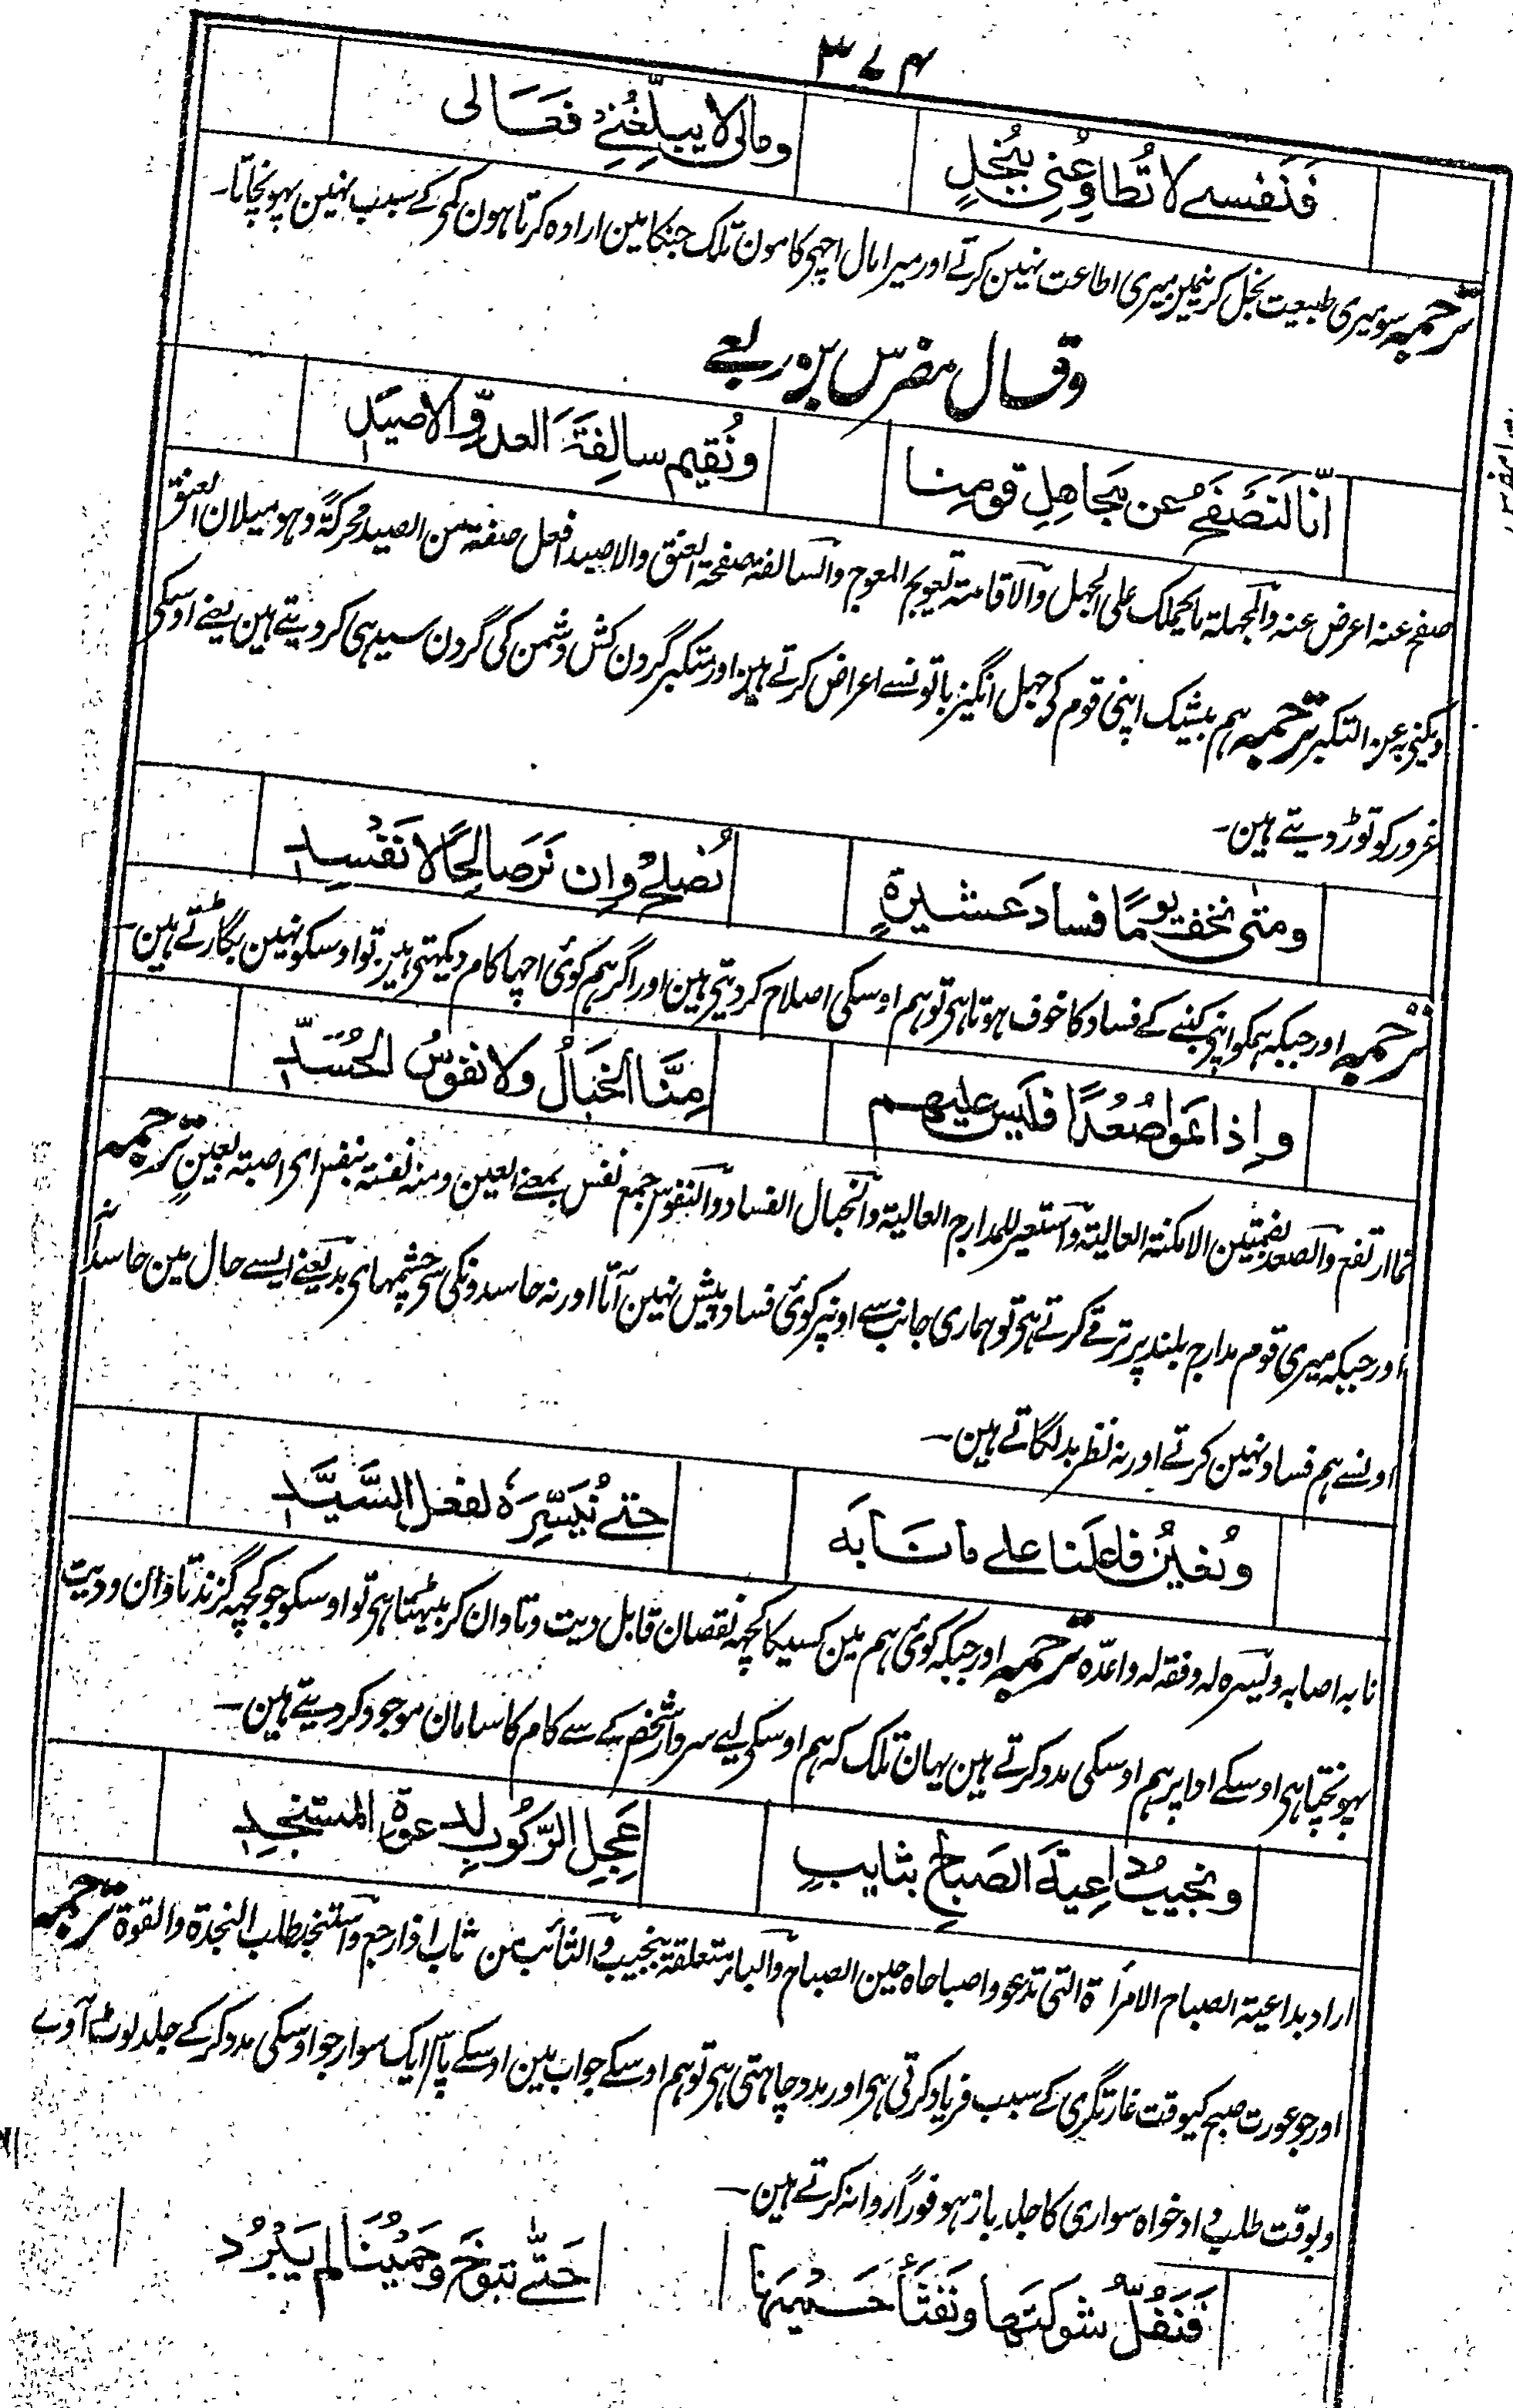 ۳۷۴
فَنَفْسِے لا تُطاوِعُنِی بِبُخلٍ
ومالی لا یبلّغُنِے فَعَالی
ترجمہ سو میری طبیعت بخل کرنیمین میری اطاعت نہین کرتے اور میرا مال اچھی کامون تلک جنکا مین ارادہ کرتا ہون کمی کے سبب نہین پہونچاتا۔
وقال مضرس بن ربعے
انّا لَنَصْفَحُ عن مَجاهِلِ قومِنا
ونُقیم سالِفةَ العدوِّ الاصیَدِ
صفح عنہ اعرض عنہ والمجہلة ما یحملک علی الجہل والاقامة تعویج المعوج والسالفة صفحة العنق والاصید افعل صفة من الصید محرکةً وہو میلان العنق
ویکنی بہ عن التکبر ترجمہ ہم بیشک اپنی قوم کی جہل انگیز باتونسے اعراض کرتے ہین اور متکبر گردن کش دشمن کی گردن سیدہی کر دیتے ہین یعنے اوسکی
غرور کو توڑ دیتے ہین۔
ومتٰی نخَفْ یومًا فسادَ عشیرةٍ
نُصْلِحْ وان نَرَ صالحًا لا نُفْسِدِ
ترجمہ اور جبکہ ہمکو اپنی کنبے کے فساد کا خوف ہوتا ہی تو ہم اوسکی اصلاح کر دیتی ہین اور اگر ہم کوئی اچھا کام دیکہتی ہین تو اوسکو نہین بگاڑتے ہین۔
واِذا نَمَوا صُعُدًا فلَیس علیهم
مِنَّا الخَبَالُ ولا نفوسُ الحُسَّدِ
نما ارتفع والصعد بضمتین الامکنة العالیة واستعیر للمدارج العالیة والخبال الفساد والنفوس جمع نفس بمعنے العین ومنہ نفستہ بنفس ای اصبتہ بعین ترجمہ
اور جبکہ میری قوم مدارج بلند پر ترقے کرتے ہی تو ہماری جانب سے اونپر کوئی فساد پیش نہین آتا اور نہ حاسدونکی سی چشمہای بد یعنے ایسے حال مین حاسدانہ
اونسے ہم فساد نہین کرتے اور نہ نظر بد لگاتے ہین۔
ونُعینُ فاعلَنا علے ما نَابَه
حتے نُیَسِّرَهُ لفعل السَّیِّدِ
نابہ اصابہ ویسرہ لہ وفقہ لہ واعدّہ ترجمہ اور جبکہ کوئی ہم مین کسیکا کچہہ نقصان قابل دیت وتاوان کر بیٹہتا ہی تو اوسکو جو کچہہ گزند تاوان ودیت
پہونچتا ہی اوسکے ادا پر ہم اوسکی مدد کرتے ہین یہان تلک کہ ہم اوسکی لیے سردار شخص کے سے کام کا سامان موجود کر دیتے ہین۔
ونجیبُ داعِیةَ الصَباحِ بثایبٍ
عَجِلِ الرّکُوبِ لدعوةِ المستنجِدِ
اراد بداعیة الصباح الامرأة التی تدعو واصباحاہ حین الصباح والباء متعلقة بنجیب والثائب من ثاب اذا رجع واستنجد طلب النجدة والقوة ترجمہ
اور جو عورت صبح کیوقت غارتگری کے سبب فریاد کرتی ہی اور مدد چاہتی ہی تو ہم اوسکے جواب مین اوسکے پاس ایک سوار جو اوسکی مدد کرکے جلد لوٹ آوے
وبوقت طلب داد خواہ سواری کا جلد باز ہو فورًا روانہ کرتے ہین۔
فَنَفُلُّ شوکتَها ونَفْثَأُ حَمْیَها
حَتّٰی تبوخَ وحَمْیُنَا لم یَبْرُدِ